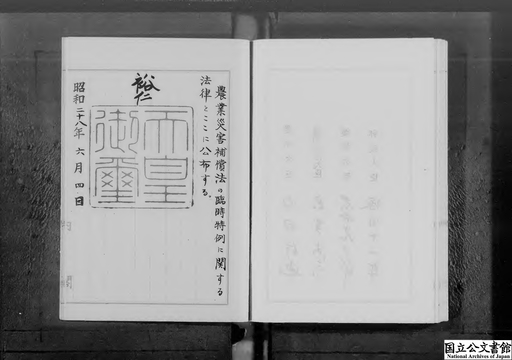 農業災害補償法の臨時特例に関する
法律をここに公布する。
裕仁
天皇
御璽
昭和二十八年六月四日
国立公文書館
National Archives of Japan